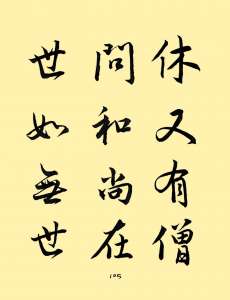 休又有僧
問和尚在
世如無世
105